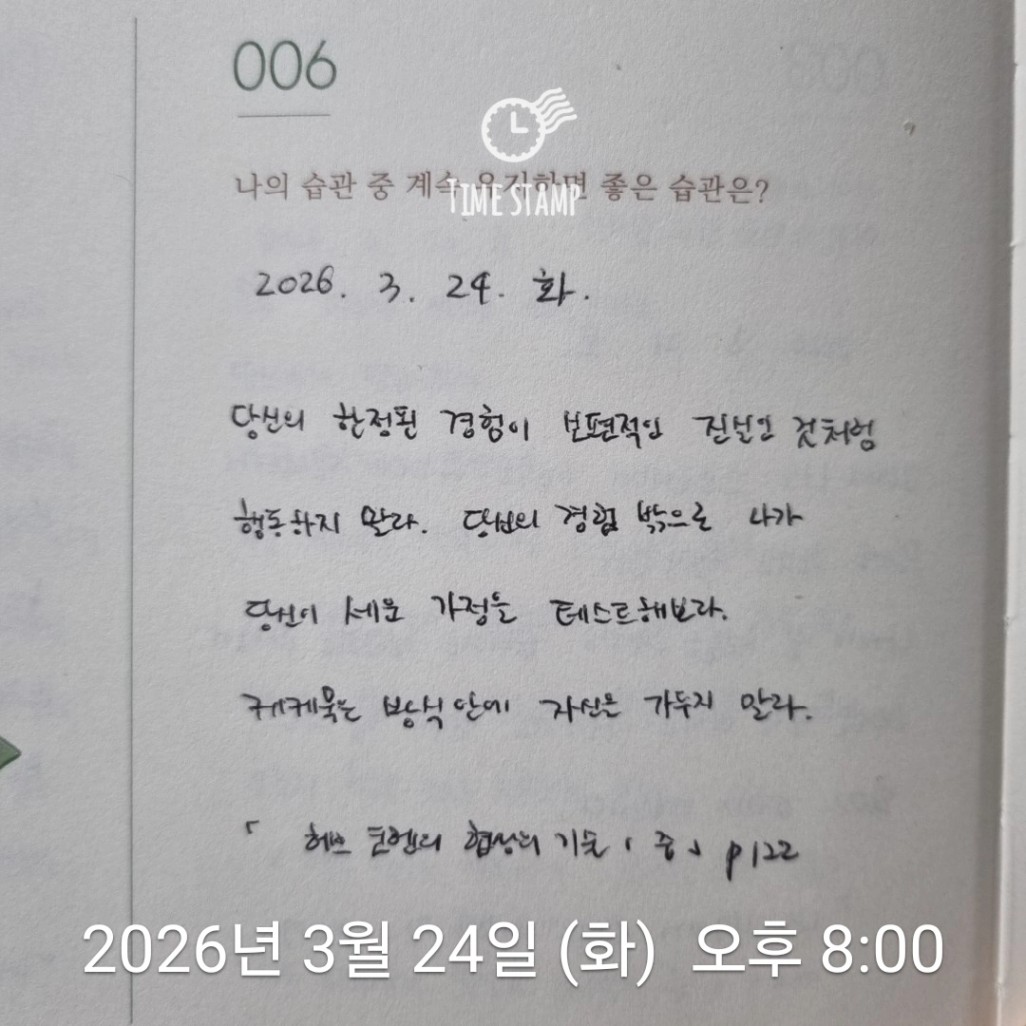 006
TIME STAMP
나의 습관 중 계속 유지하면 좋은 습관은?
2026. 3. 24. 화.
당신의 한정된 경험이 보편적인 진실인 것처럼
행동하지 말라. 당신의 경험 밖으로 나가
당신이 세운 가정을 테스트해보라.
케케묵은 방식 안에 자신을 가두지 말라.
「 허브 코헨의 협상의 기술 1 중」 p122
2026년 3월 24일 (화) 오후 8:00